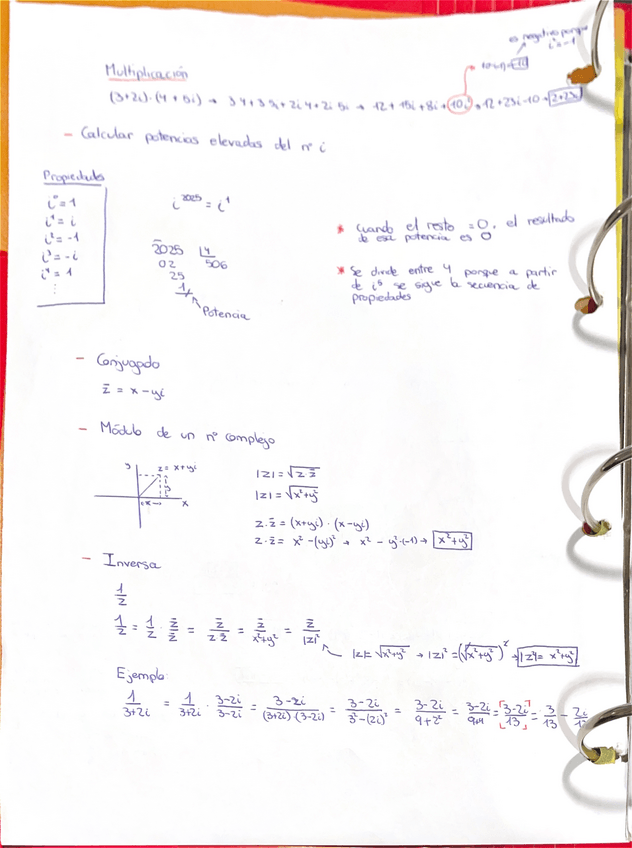 es negativo porque
i² = -1
10·(-1) = -10
Multiplicación
(3+2i)·(4+5i) → 3·4+3·5i+2i·4+2i·5i → 12+15i+8i+10i² → 12+23i-10 → 2+23i
- Calcular potencias elevadas del nº i
Propiedades
i⁰ = 1
i¹ = i
i² = -1
i³ = -i
i⁴ = 1
⋮
i²⁰²⁵ = i¹
2025 | 4
02 506
25
1
Potencia
* Cuando el resto = 0, el resultado
de esa potencia es 0
* Se divide entre 4 porque a partir
de i⁵ se sigue la secuencia de
propiedades
- Conjugado
z̄ = x - yi
- Módulo de un nº complejo
y
z = x+yi
y
x
x
|z| = √z·z̄
|z| = √x²+y²
z·z̄ = (x+yi)·(x-yi)
z·z̄ = x² - (yi)² → x² - y²·(-1) → x²+y²
- Inversa
1/z
1/z = 1/z · z̄/z̄ = z̄/z·z̄ = z̄/x²+y² = z̄/|z|²
|z| = √x²+y² → |z|² = (√x²+y²)² → |z|² = x²+y²
Ejemplo
1/3+2i = 1/3+2i · 3-2i/3-2i = 3-2i/(3+2i)·(3-2i) = 3-2i/3²-(2i)² = 3-2i/9+2² = 3-2i/9+4 = 3-2i/13 = 3/13 - 2i/13